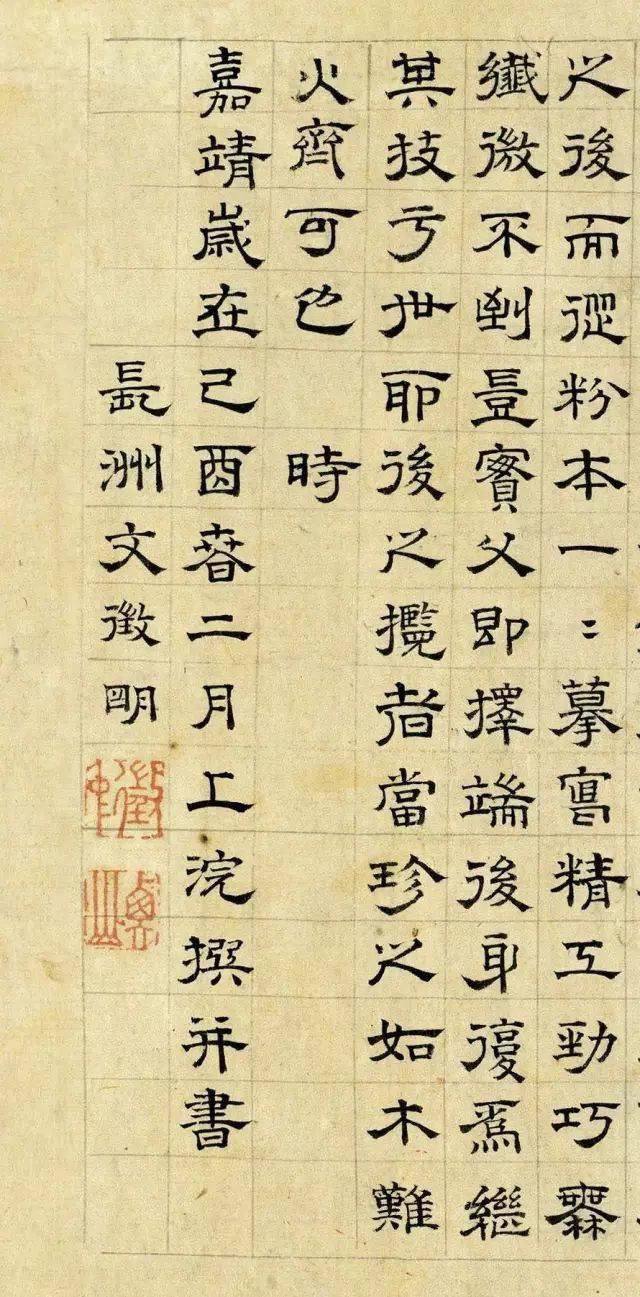 之後而從粉本一〻摹寫精工勁巧無
纖微不到豈實父即擇端後身復為繼
其技亏世耶後之攬者當珍之如木難
火齊可也 時
嘉靖歲在己酉春二月上浣撰并書
長洲文徵明